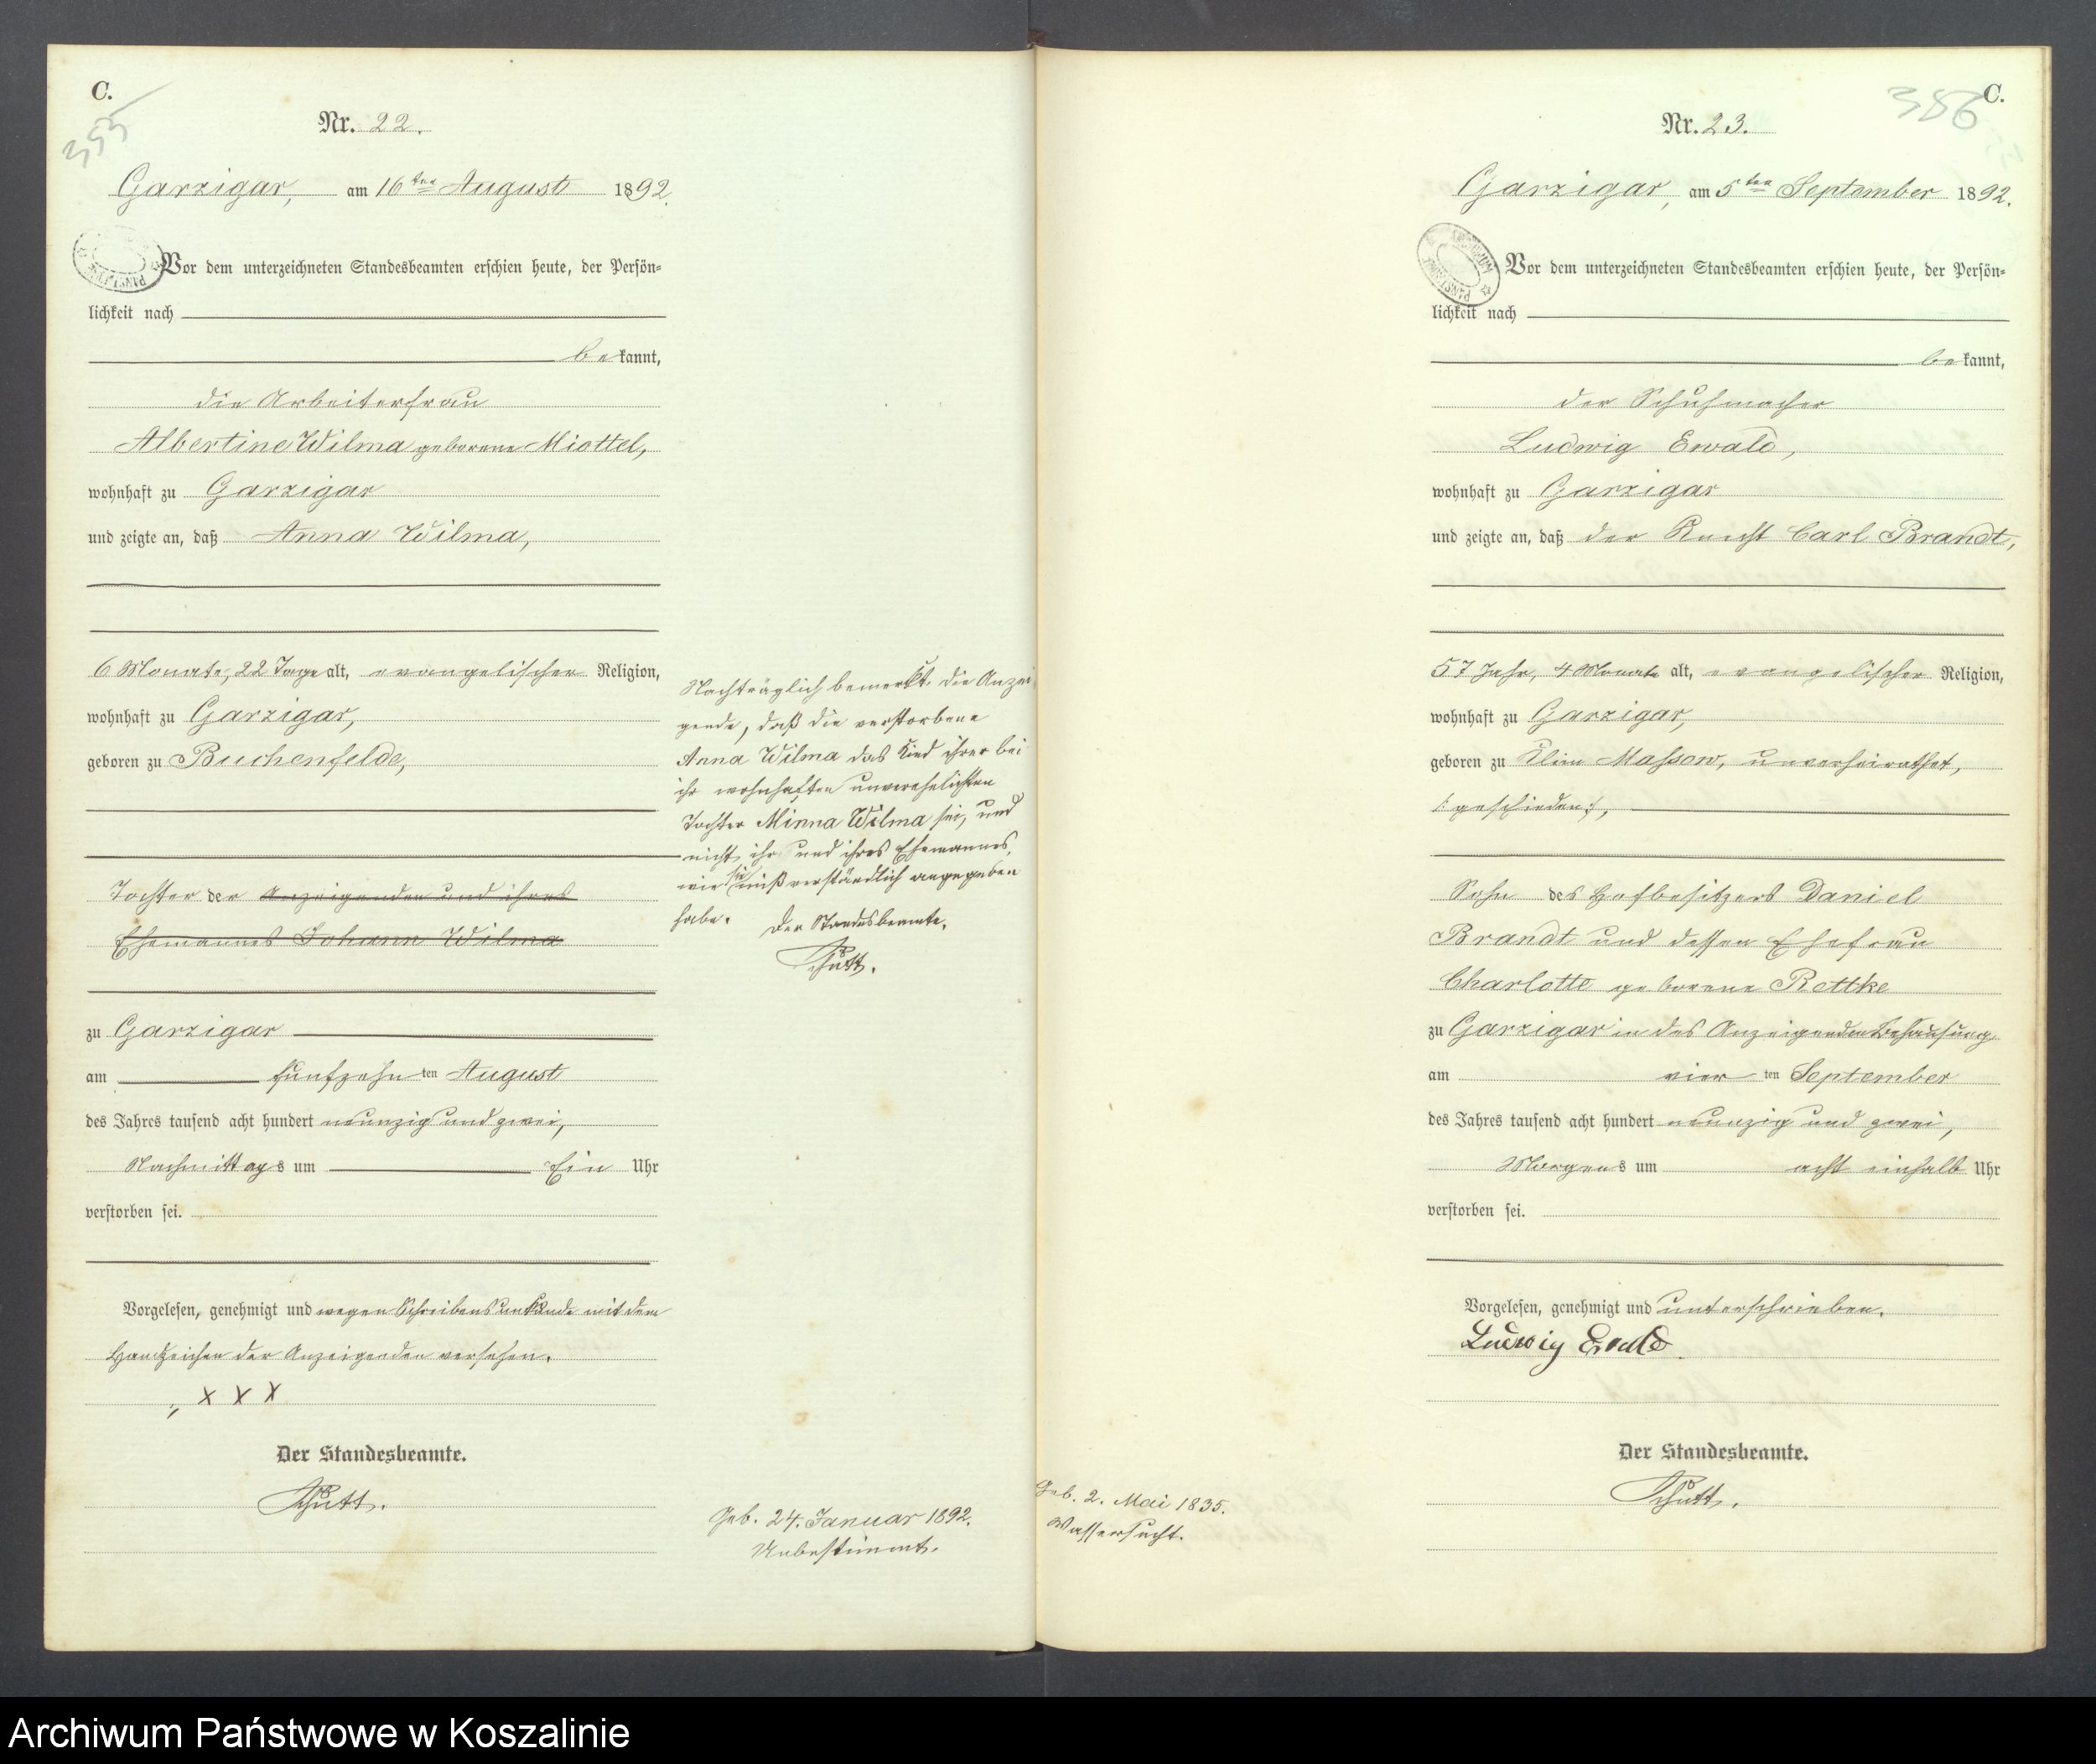 C.
355
Nr. 22.
Garzigar, am 16ten August 1892.
Vor dem unterzeichneten Standesbeamten erschien heute, der Persön-
lichkeit nach
bekannt,
die Arbeiterfrau
Albertine Wilma geborene Miottel,
wohnhaft zu Garzigar
und zeigte an, daß Anna Wilma,
6 Monate, 22 Tage alt, evangelischer Religion,
wohnhaft zu Garzigar,
geboren zu Buchenfelde,
Tochter der Anzeigenden und ihres
Ehemannes Johann Wilma
zu Garzigar
am fünfzehn ten August
des Jahres tausend acht hundert neunzig und zwei,
Nachmittags um Ein Uhr
verstorben sei.
Vorgelesen, genehmigt und wegen Schreibensunkunde mit dem
Handzeichen der Anzeigenden versehen.
„ X X X
Der Standesbeamte.
Schütt.
Nachträglich bemerkt die Anzei
gende, daß die verstorbene
Anna Wilma das Kind ihrer bei
ihr wohnhaften unverehelichten
Tochter Minna Wilma sei, und
nicht ihr und ihres Ehemannes,
wie sie mißverständlich angegeben
habe. Der Standesbeamte.
Schütt.
Geb. 24. Januar 1892.
Unbestimmt.
C.
386
Nr. 23.
Garzigar, am 5ten September 1892.
Vor dem unterzeichneten Standesbeamten erschien heute, der Persön-
lichkeit nach
bekannt,
der Schuhmacher
Ludwig Ewald,
wohnhaft zu Garzigar
und zeigte an, daß der Knecht Carl Brandt,
57 Jahr, 4 Monate alt, evangelischer Religion,
wohnhaft zu Garzigar,
geboren zu Klein Massow, unverheirathet,
/: geschieden :/,
Sohn des Hofbesitzers Daniel
Brandt und dessen Ehefrau
Charlotte geborene Rettke
zu Garzigar in des Anzeigenden Behausung
am vier ten September
des Jahres tausend acht hundert neunzig und zwei,
Morgens um acht einhalb Uhr
verstorben sei.
Vorgelesen, genehmigt und unterschrieben.
Ludwig Ewald
Der Standesbeamte.
Schütt.
Geb. 2. Mai 1835.
Wassersucht.
Archiwum Państwowe w Koszalinie